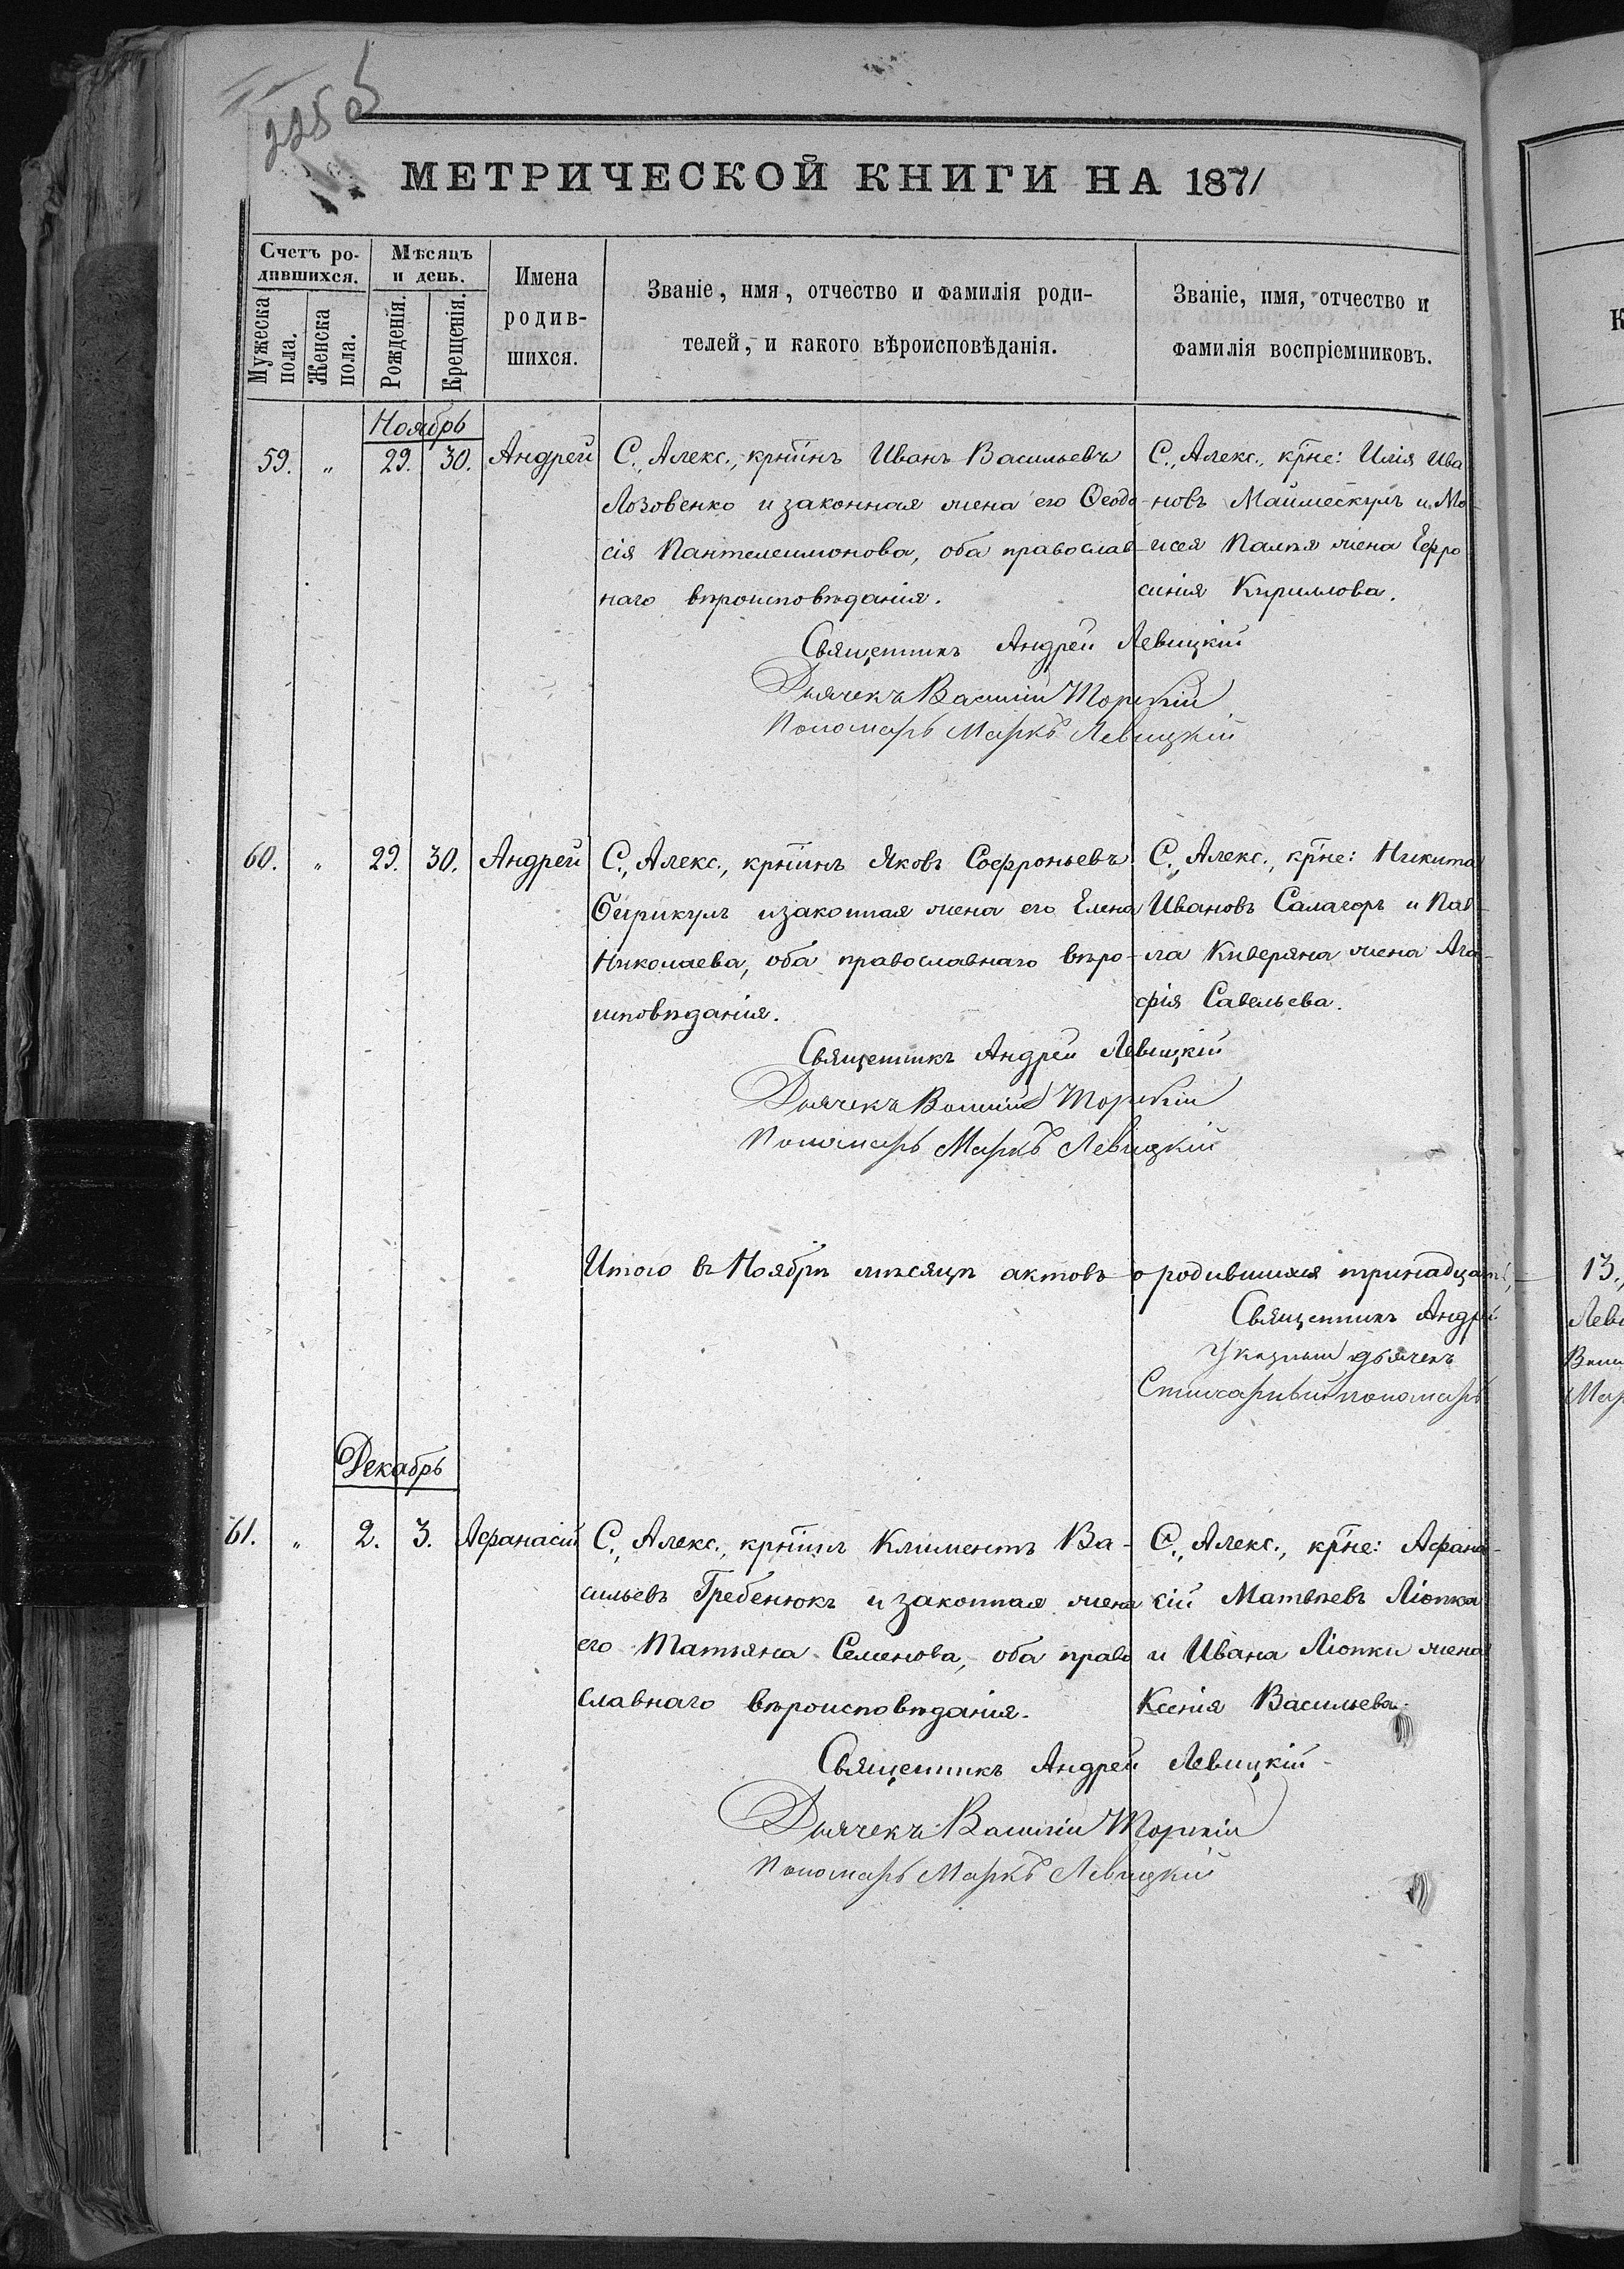 225 об
МЕТРИЧЕСКОЙ КНИГИ НА 1871
Счетъ ро-
дившихся.
Мужеска
пола.
Женска
пола.
Мѣсяцъ
и день.
Рожденія.
Крещенія.
Имена
родив-
шихся.
Званіе, имя, отчество и фамилія роди-
телей, и какого вѣроисповѣданія.
Званіе, имя, отчество и
фамилія воспріемниковъ.
Ноябрь
59. " 29. 30. Андрей
С., Алекс., крѣнинъ Иванъ Васильевъ
Лозовенко и законная жена его Ѳеодо
сія Пантелеимонова, оба православ-
наго вѣроисповѣданія.
С., Алекс., крне: Илія Ива
новъ Маймескулъ и Мо-
исея жена Ефро
синія Кириллова.
Священникъ Андрей Левицкій
Дьячекъ Василій Торскій
Пономарь Маркъ Левицкій
60. " 29. 30. Андрей
С., Алекс., крѣнинъ Яковъ Софроньевъ
и законная жена его Елена
Николаева, оба православнаго вѣро-
исповѣданія.
С., Алекс., крне: Никита
Ивановъ Салагоръ и Пав-
ла Киверяна жена Ага-
фія Савельева.
Священникъ Андрей Левицкій
Дьячекъ Василій Торскій
Пономарь Маркъ Левицкій
Итого въ Ноябрѣ мѣсяцѣ актовъ о родившихся тринадцать, 13.,
Священникъ Андрей Леви
Указный дьячекъ
Стихарный пономарь Мар
Декабрь
61. " 2. 3. Афанасій
С., Алекс., крѣнинъ Климентъ Ва-
сильевъ Гребенюкъ и законная жена
его Татьяна Семенова, оба право
славнаго вѣроисповѣданія.
С., Алекс., крне: Афана-
сій Матвѣевъ Ліопка
и Ивана Ліопки жена
Ксенія Васильева.
Священникъ Андрей Левицкій
Дьячекъ Василій Торскій
Пономарь Маркъ Левицкій